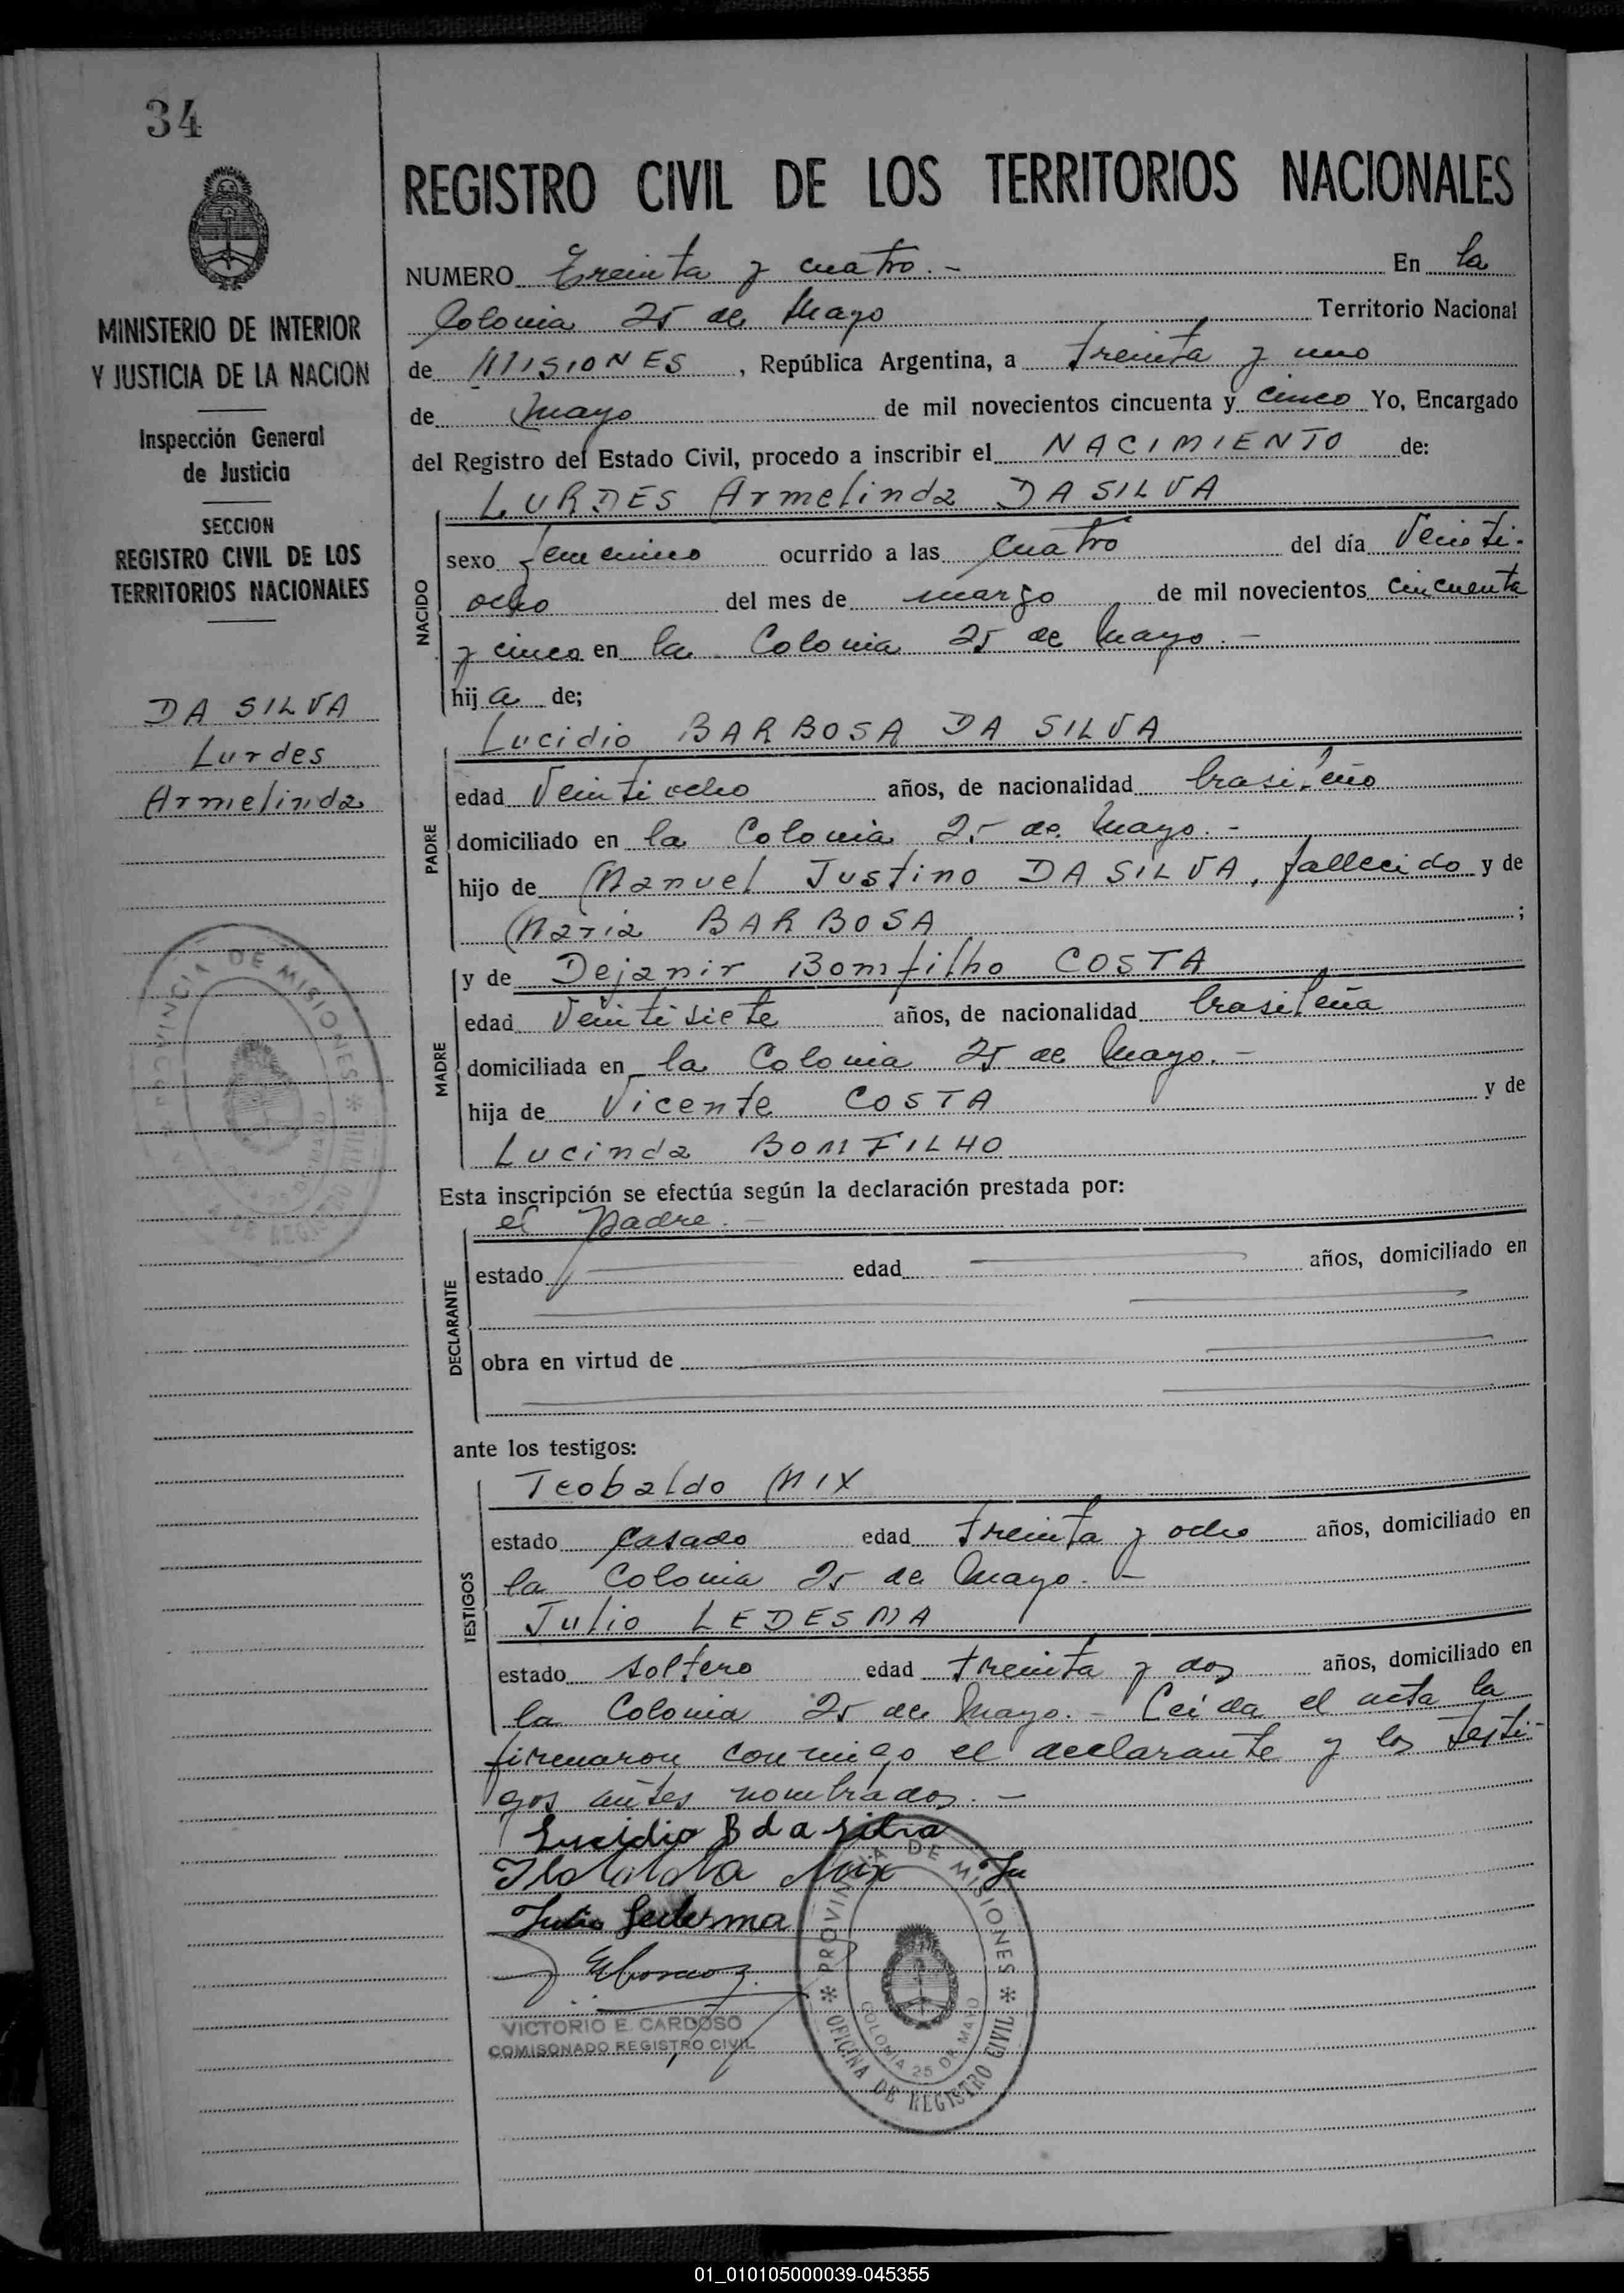 34
MINISTERIO DE INTERIOR
Y JUSTICIA DE LA NACION
Inspección General
de Justicia
SECCION
REGISTRO CIVIL DE LOS
TERRITORIOS NACIONALES
DA SILVA
Lurdes
Armelinda
PROVINCIA DE MISIONES
REGISTRO CIVIL DE LOS TERRITORIOS NACIONALES
NUMERO Treinta y cuatro.- En la
Colonia 25 de Mayo Territorio Nacional
de MISIONES, República Argentina, a treinta y uno
de mayo de mil novecientos cincuenta y cinco Yo, Encargado
del Registro del Estado Civil, procedo a inscribir el NACIMIENTO de:
LURDES Armelinda DA SILVA
NACIDO
sexo femenino ocurrido a las cuatro del día Veinti-
ocho del mes de marzo de mil novecientos cincuenta
y cinco en la Colonia 25 de Mayo.-
hija de;
PADRE
Lucidio BARBOSA DA SILVA
edad Veintiocho años, de nacionalidad brasileño
domiciliado en la Colonia 25 de Mayo.-
hijo de Manuel Justino DA SILVA, fallecido y de
Maria BARBOSA ;
MADRE
y de Dejanir Bomfilho COSTA
edad Veintisiete años, de nacionalidad brasileña
domiciliada en la Colonia 25 de Mayo.-
hija de Vicente COSTA y de
Lucinda BOMFILHO
Esta inscripción se efectúa según la declaración prestada por:
el padre.-
DECLARANTE
estado edad años, domiciliado en
obra en virtud de
ante los testigos:
TESTIGOS
Teobaldo MIX
estado casado edad treinta y ocho años, domiciliado en
la Colonia 25 de Mayo.-
Julio LEDESMA
estado soltero edad treinta y dos años, domiciliado en
la Colonia 25 de Mayo.- Leida el acta la
firmaron conmigo el declarante y los testi-
gos antes nombrados.-
Lucidio B da silva
Mix
Julio Ledesma
VICTORIO E. CARDOSO
COMISONADO REGISTRO CIVIL
PROVINCIA DE MISIONES
OFICINA DE REGISTRO CIVIL
COLONIA 25 DE MAYO
01_010105000039-045355